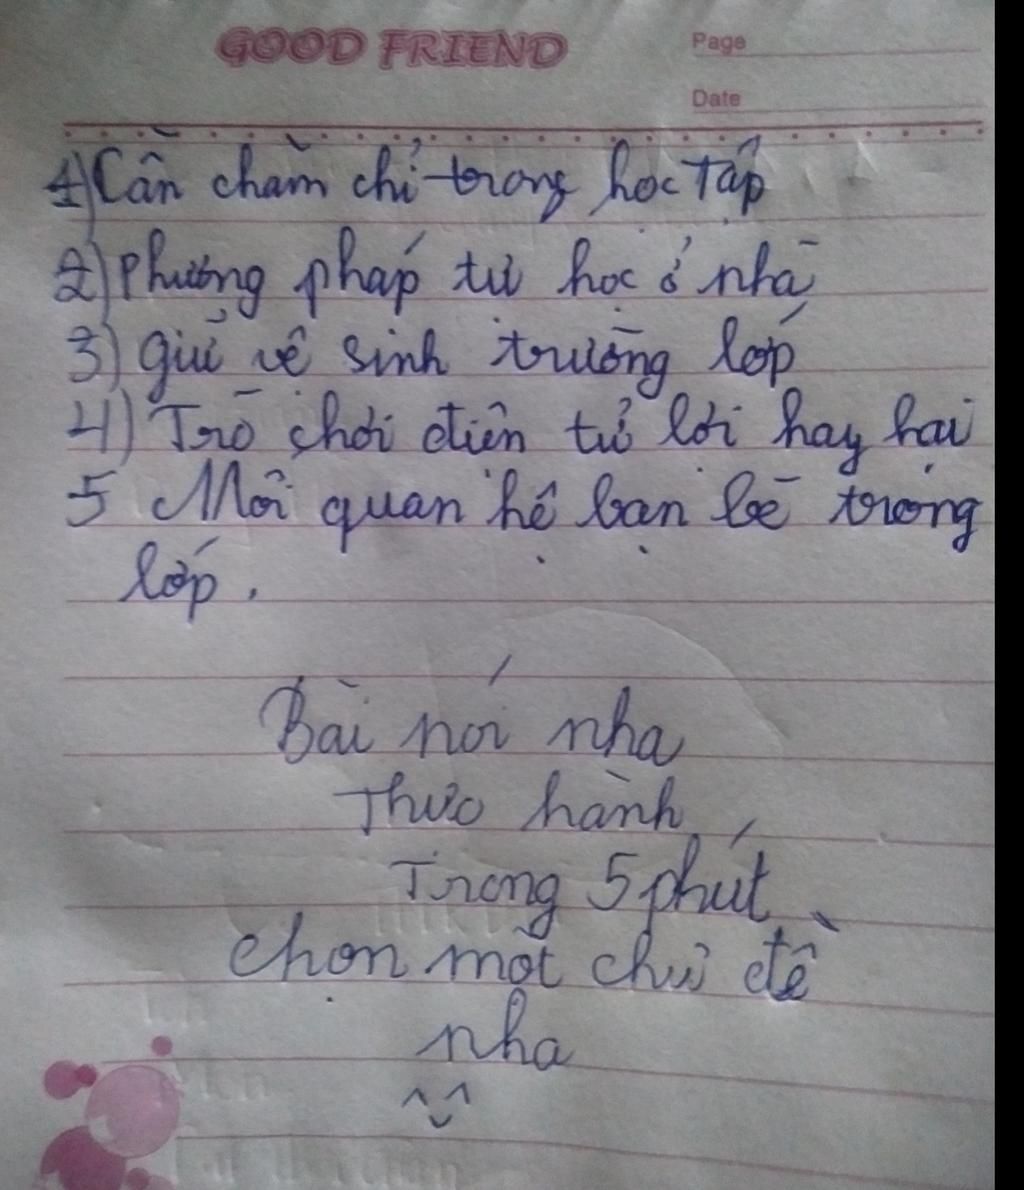 GOOD FRIEND
Page
Date
1) Cần chăm chỉ trong học Tập
2) phương pháp tự học ở nhà
3) giữ vệ sinh trường lớp
4) Trò chơi điện tử lợi hay hại
5 Mối quan hệ bạn bè trong
lớp.
Bài nói nha
Thực hành
Trong 5 phút
chọn một chủ đề
nha
^‿^